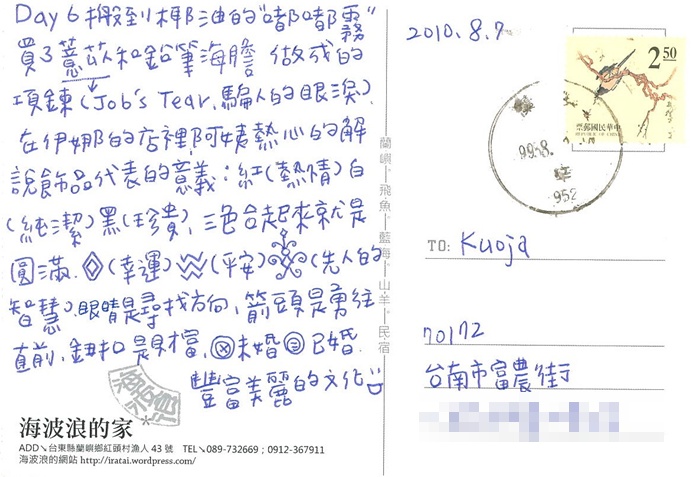 Day 6 搬到椰油的"嘟嘟霧"
買了薏苡和鉛筆海膽 做成的
項鍊 (Job's Tear, 騙人的眼淚).
在伊娜的店裡,阿姨熱心的解
說飾品代表的意義:紅(熱情)白
(純潔)黑(珍貴), 三色合起來就是
圓滿. (幸運) (平安) (先人的
智慧), 眼睛是尋找方向, 箭頭是勇往
直前, 鈕扣是財富, 未婚 已婚.
豐富美麗的文化
海波浪
海波浪的家
ADD↘台東縣蘭嶼鄉紅頭村漁人 43 號 TEL↘089-732669;0912-367911
海波浪的網站 http://iratai.wordpress.com/
蘭嶼—飛魚—藍海—山羊—民宿
2010.8.7
2 50
中華民國郵票
REPUBLIC OF CHINA
99.8.
952
TO: Kuoja
70172
台南市富農街